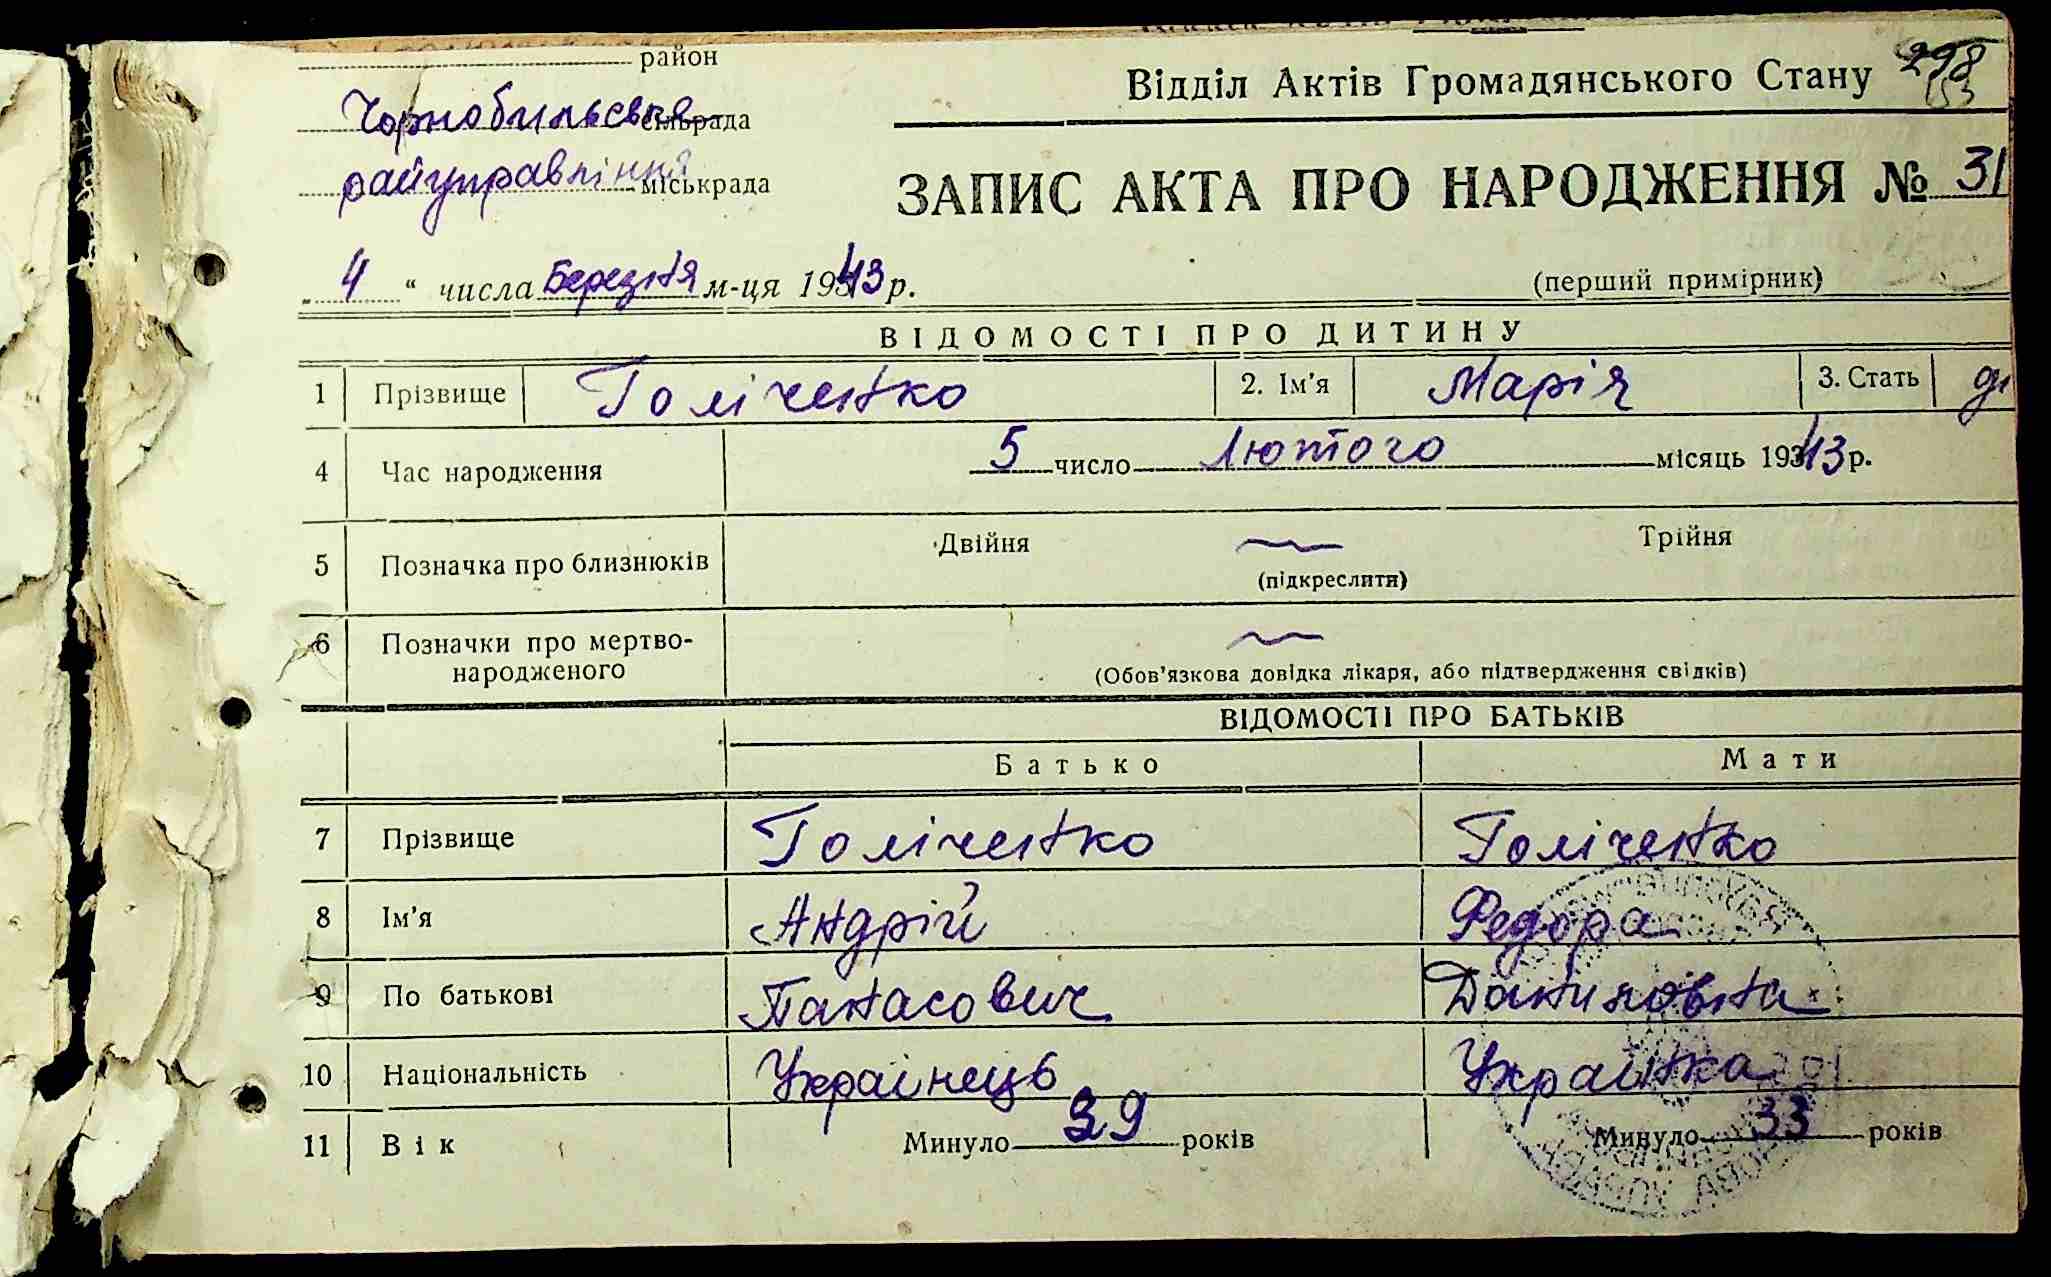 район
Відділ Актів Громадянського Стану 298
153
Чорнобильська сільрада
райуправління міськрада
ЗАПИС АКТА ПРО НАРОДЖЕННЯ № 31
„ 4 “ числа Березня м-ця 1943 р.
(перший примірник)
ВІДОМОСТІ ПРО ДИТИНУ
1 Прізвище Голіченко 2. Ім'я Марія 3. Стать
4 Час народження 5 число Лютого місяць 1943 р.
5 Позначка про близнюків Двійня Трійня
(підкреслити)
6 Позначки про мертво-
народженого
(Обов'язкова довідка лікаря, або підтвердження свідків)
ВІДОМОСТІ ПРО БАТЬКІВ
Батько Мати
7 Прізвище Голіченко Голіченко
8 Ім'я Андрій Федора
9 По батькові Панасович Даниловна
10 Національність Українець Українка
11 Вік Минуло 39 років Минуло 33 років